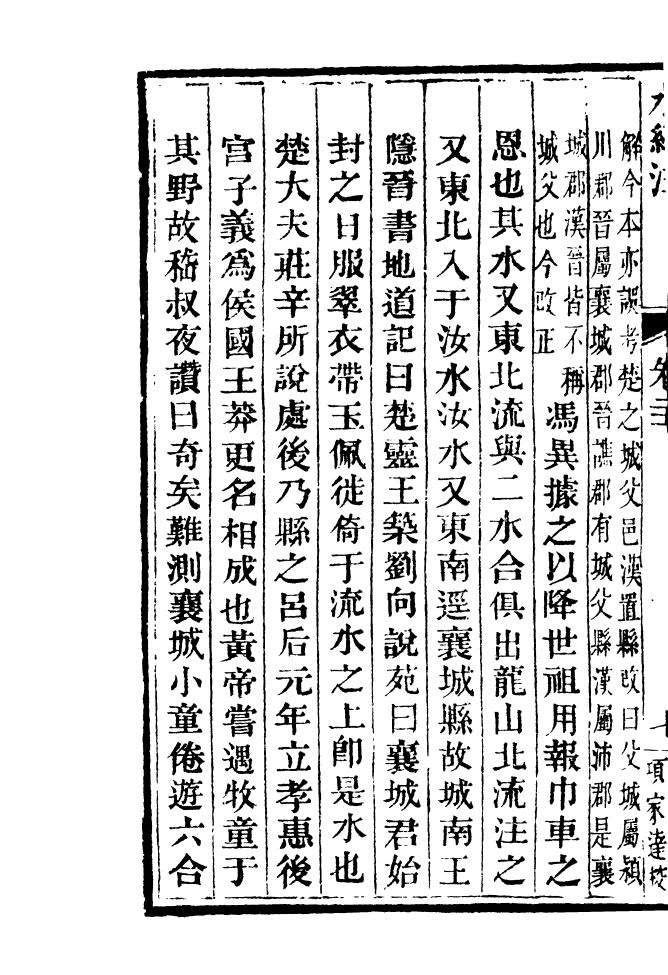 水經注
卷二
十一
項家達校
解今本亦誤考楚之城父邑漢置縣改曰父城屬潁
川郡晉屬襄城郡晉譙郡有城父縣漢屬沛郡是襄
城郡漢晉皆不稱
城父也今改正
馮異據之以降世祖用報巾車之
恩也其水又東北流與二水合俱出龍山北流注之
又東北入于汝水汝水又東南逕襄城縣故城南王
隱晉書地道記曰楚靈王築劉向說苑曰襄城君始
封之日服翠衣帶玉佩徙倚于流水之上卽是水也
楚大夫莊辛所說處後乃縣之呂后元年立孝惠後
宮子義爲侯國王莽更名相成也黃帝嘗遇牧童于
其野故嵇叔夜讚曰奇矣難測襄城小童倦遊六合